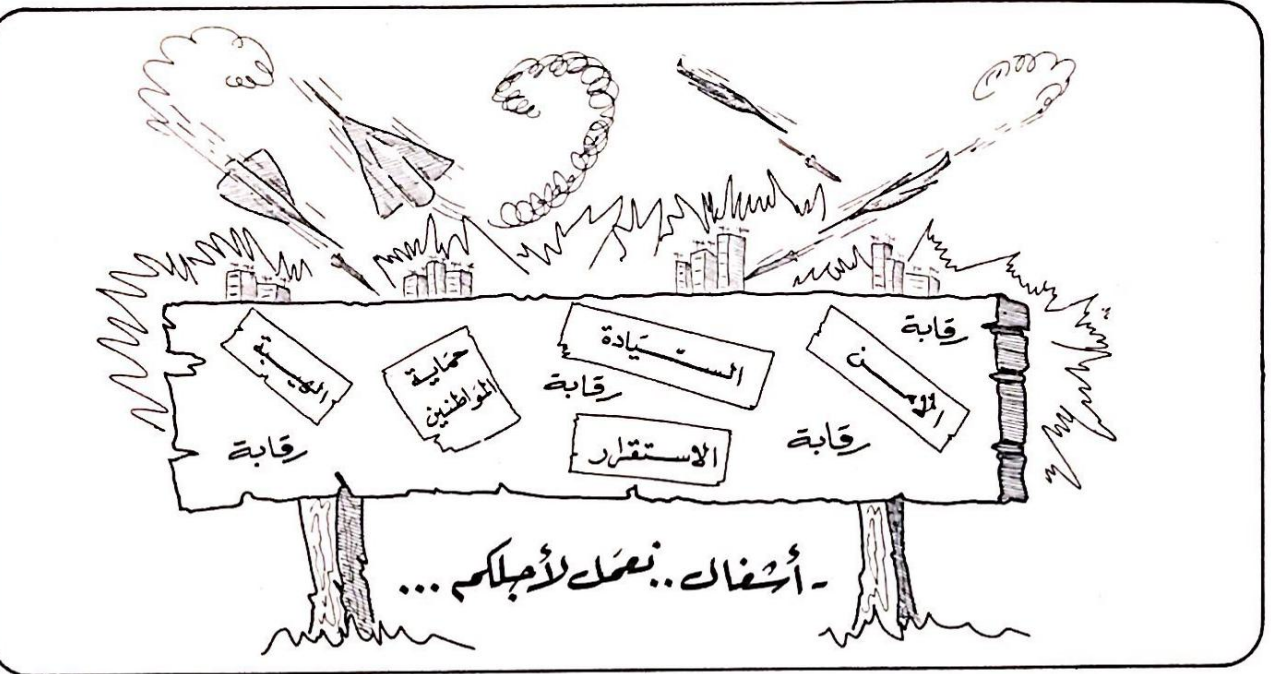 رقابة
الأمن
السيادة
رقابة
حماية
المواطنين
الهيبة
رقابة
الاستقرار
رقابة
- أشغال.. نعمل لأجلكم...